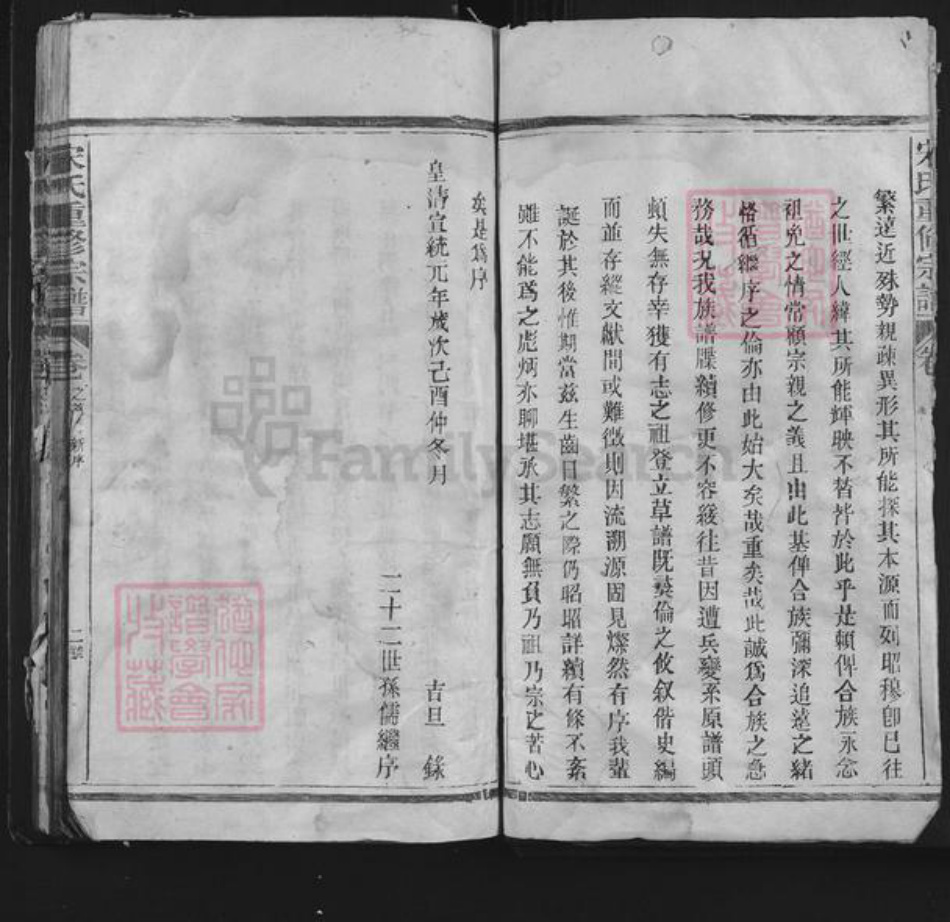 宋氏重修宗譜
繁遠近殊勢親疎異形其所能探其本源而如昭穆即已往
之世經人緯其所能輝映不朁者於此乎是賴俾合族永念
祖免之情常願宗親之義且由此基俾合族彌深追遠之緒
恪循繼序之倫亦由此始大矣哉重矣哉此誠為合族之急
務哉况我族譜牒續修更不容緩往昔因遭兵變系原譜頭
頗失無存幸獲有志之祖登立草譜既彛倫之攸叙偕史編
而並存縱文献間或難徵則因流溯源固見燦然有序我輩
誕於其後惟期當兹生齒日繁之際仍昭昭詳續有條不紊
雖不能爲之彪炳亦聊堪承其志願無負乃祖乃宗之苦心
矣是爲序
皇清宣統元年歲次己酉仲冬月 吉旦 錄
二十二世孫儒繼序
宋氏重修宗譜 卷一之首 新序 二
FamilySearch